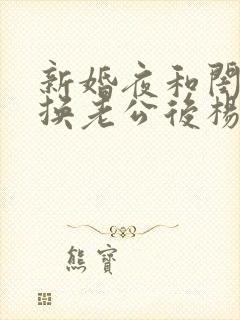 新婚夜和閨
換老公後楊
熊寶